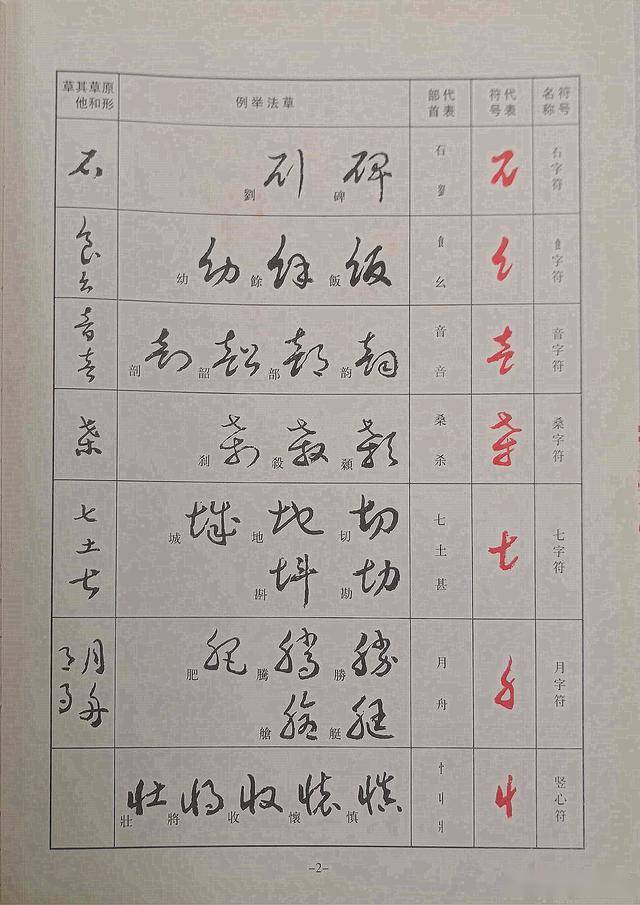 符号名称
代表符号
代表部首
草法举例
原形草和其他草
石字符
石
石
碑 劉
石
飠字符
飠
幺
飯 餘 幼
食
幺
音字符
音
咅
韵 部 韶 剖
音
桑字符
桑
杀
顙 殺 刹
桑
七字符
七
七
土
甚
切 地 城
勘 斟
七
土
月字符
月
月
舟
勝 騰 肥
艇 艙
月
舟
竖心符
忄
丬
爿
慎 懷 收 將 壯
-2-